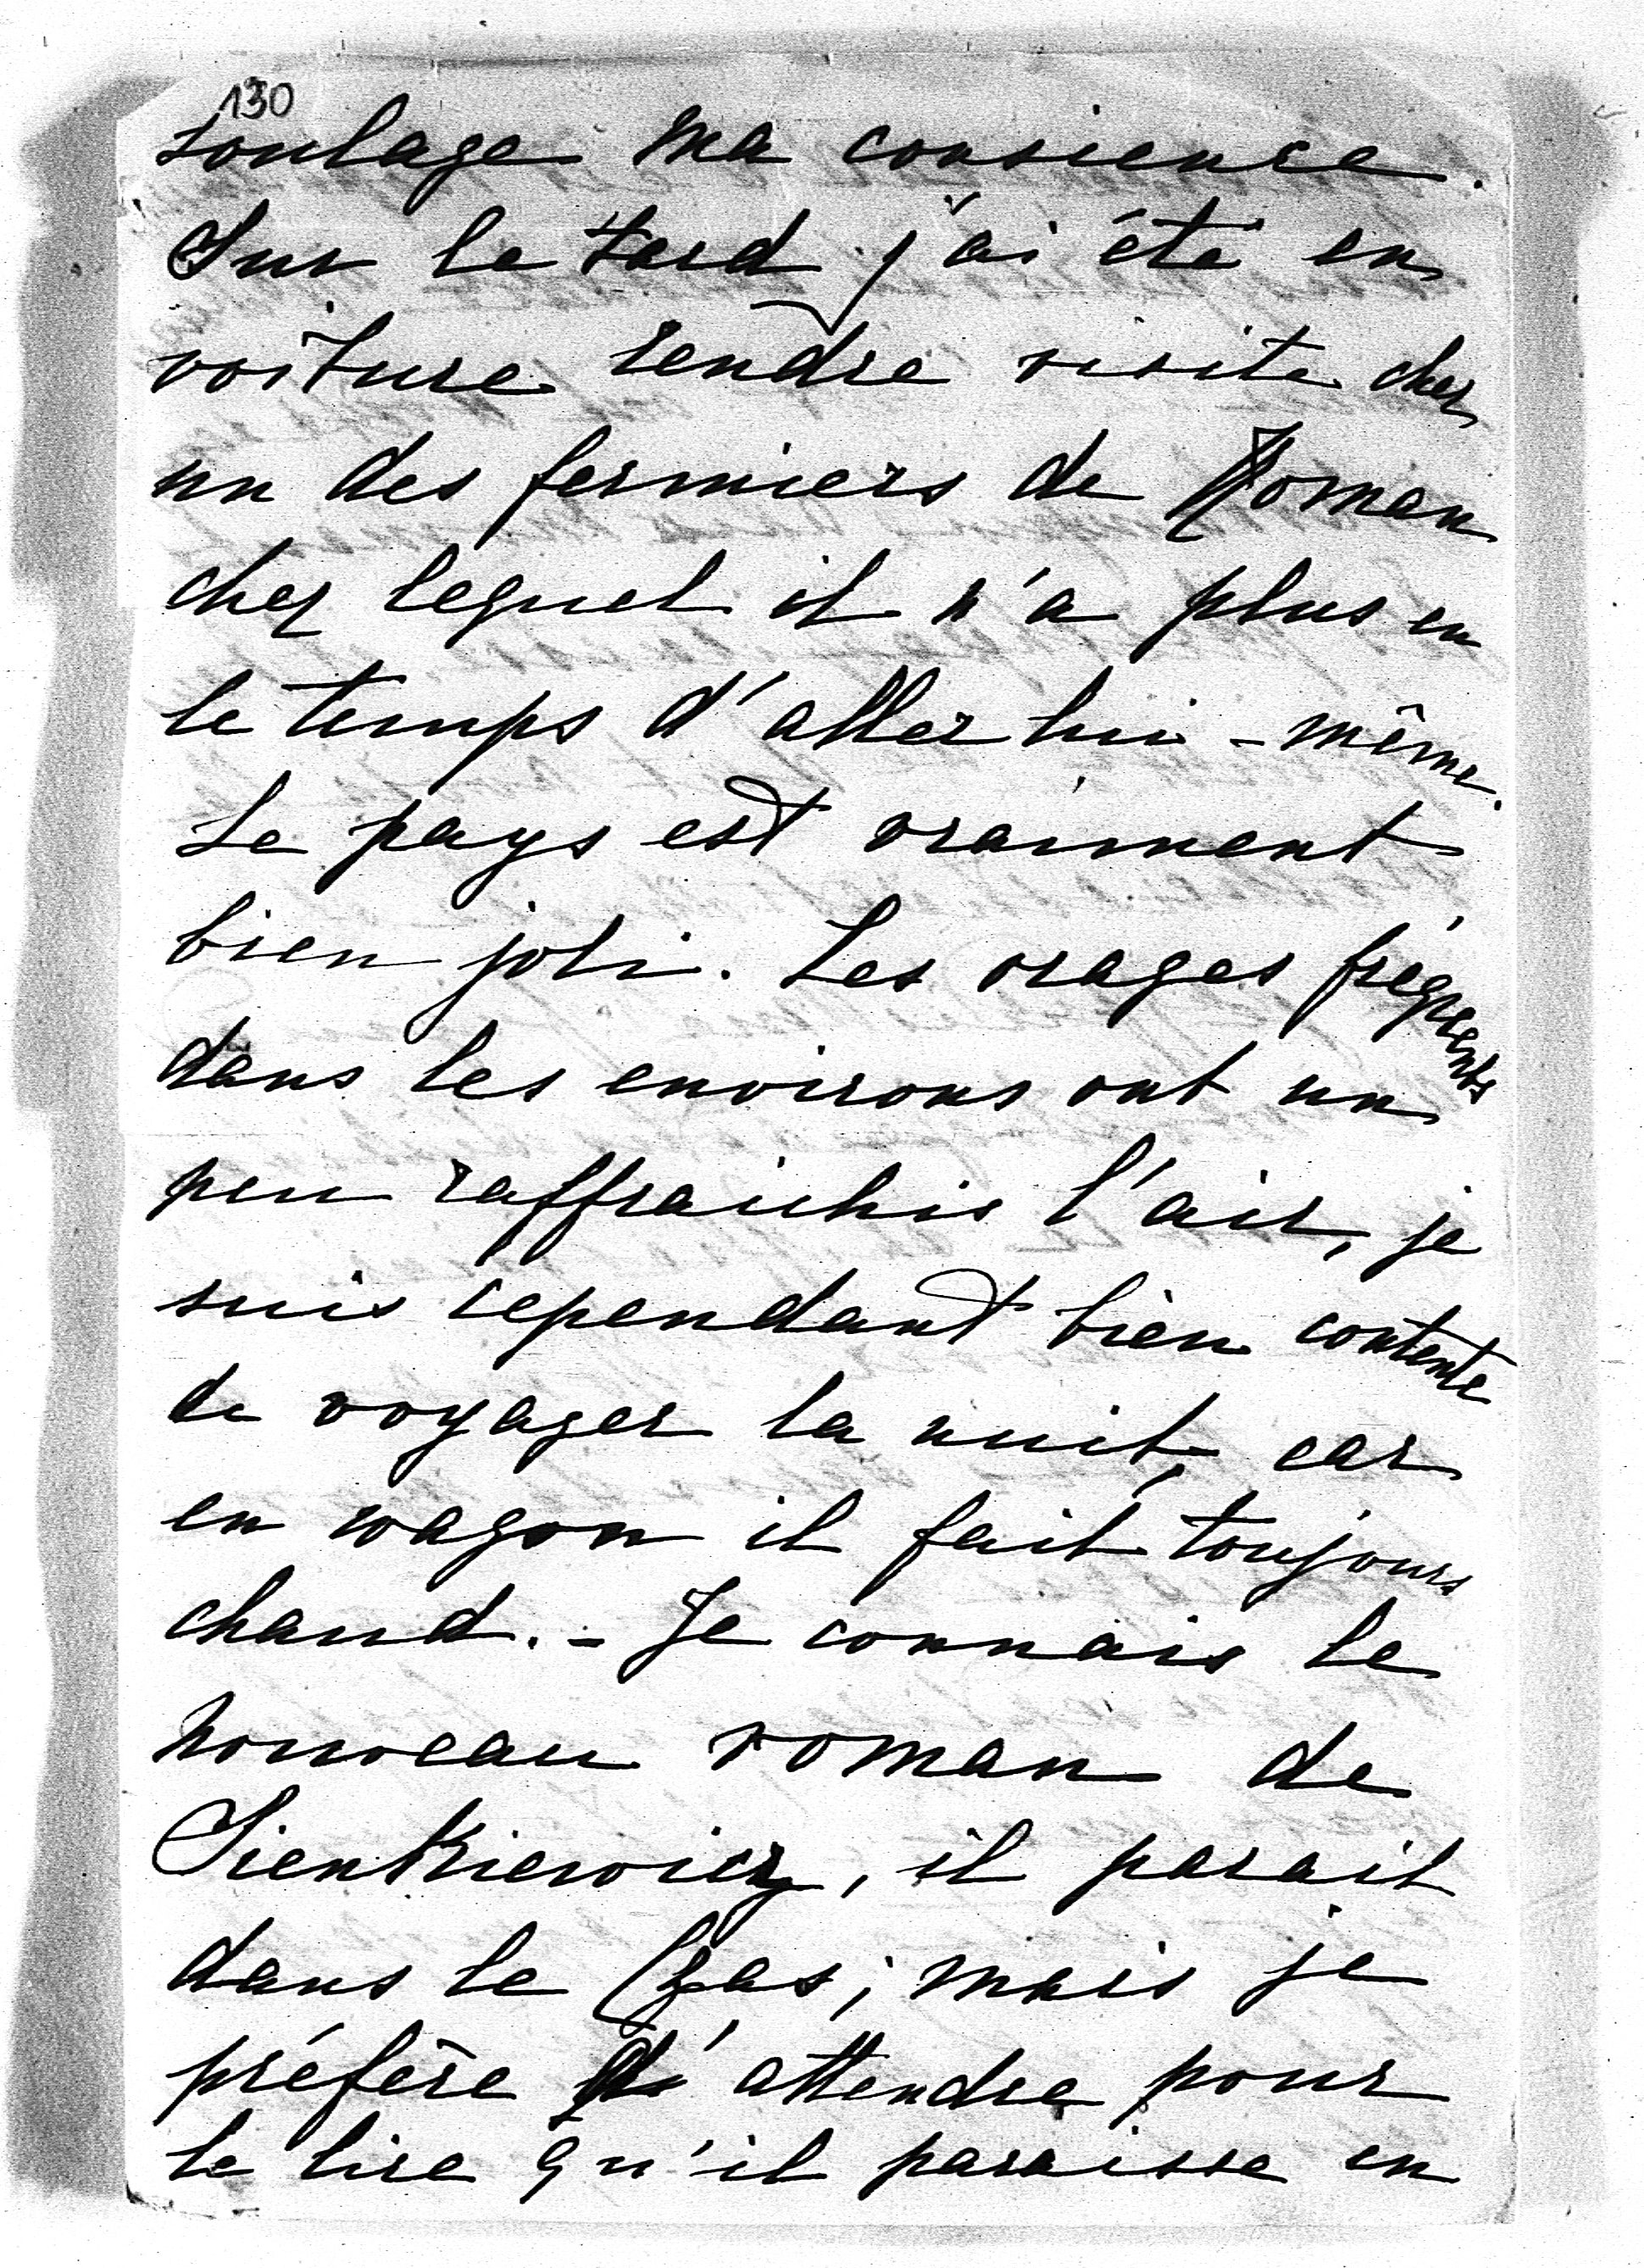 130
soulage ma consience.
Sur le tard j'ai été en
voiture rendre visite chez
un des fermiers de Roman
chez lequel il n'a plus eu
le temps d'aller lui-même.
Le pays est vraiment
bien joli. Les orages fréquents
dans les environs ont un
peu raffraichis l'air, je
suis cependant bien contente
de voyager la nuit, car
en wagon il fait toujours
chaud. - Je connais le
nouveau roman de
Sienkiewicz, il parait
dans le Czas; mais je
préfère d'attendre pour
le lire qu'il paraisse en